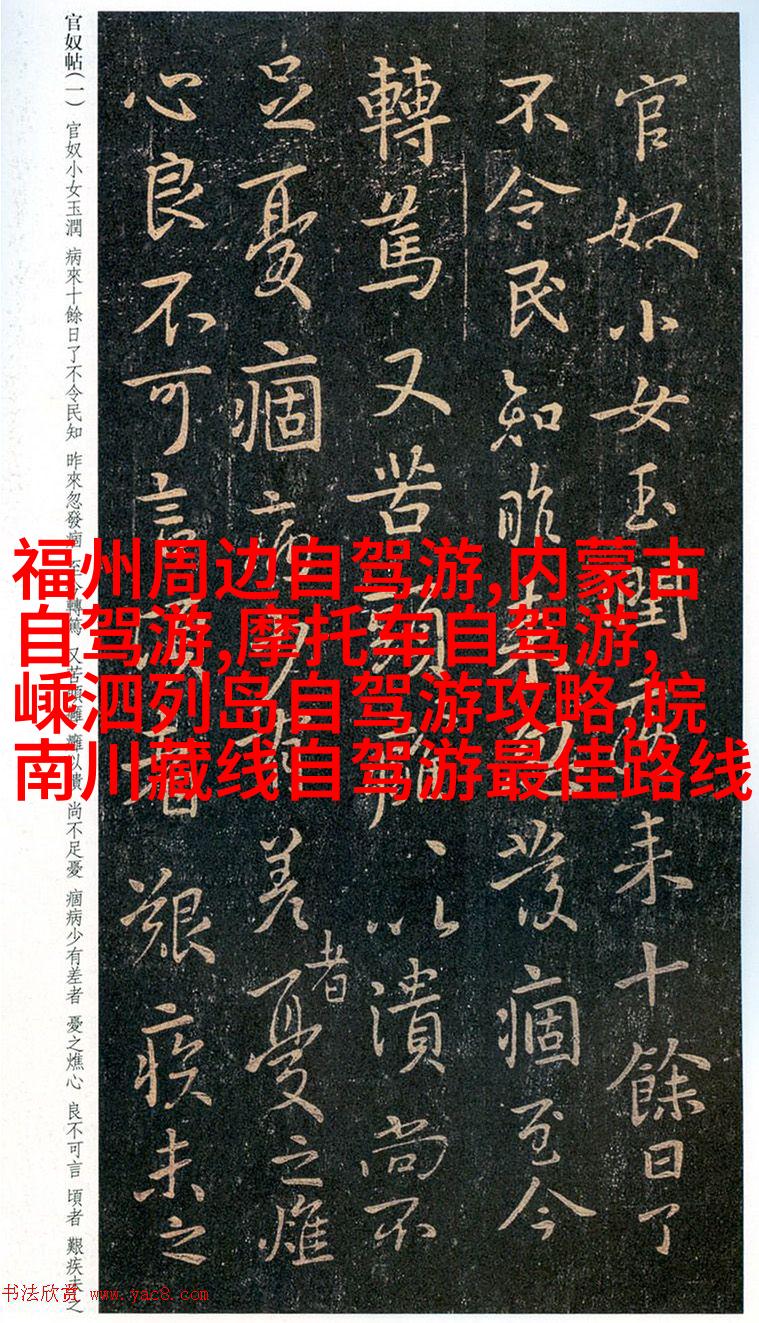 官奴帖(一) 官奴小女玉潤 病來十餘日了不令民知 昨來忽發痼 至今轉篤 又苦頭癰 癰以潰 尚不足憂 痼病少有差者 憂之燋心 良不可言 頃者 艱疾未之
官奴小女玉潤病來十餘日了
不令民知昨來忽發痼至今
轉篤又苦頭癰、以潰尚不
足憂痼病少有差者憂之燋
心良不可言頃者艱疾未之
福州周边自驾游,内蒙古
自驾游,摩托车自驾游,
嵊泗列岛自驾游攻略,皖
南川藏线自驾游最佳路线
书法欣赏 www.yac8.com